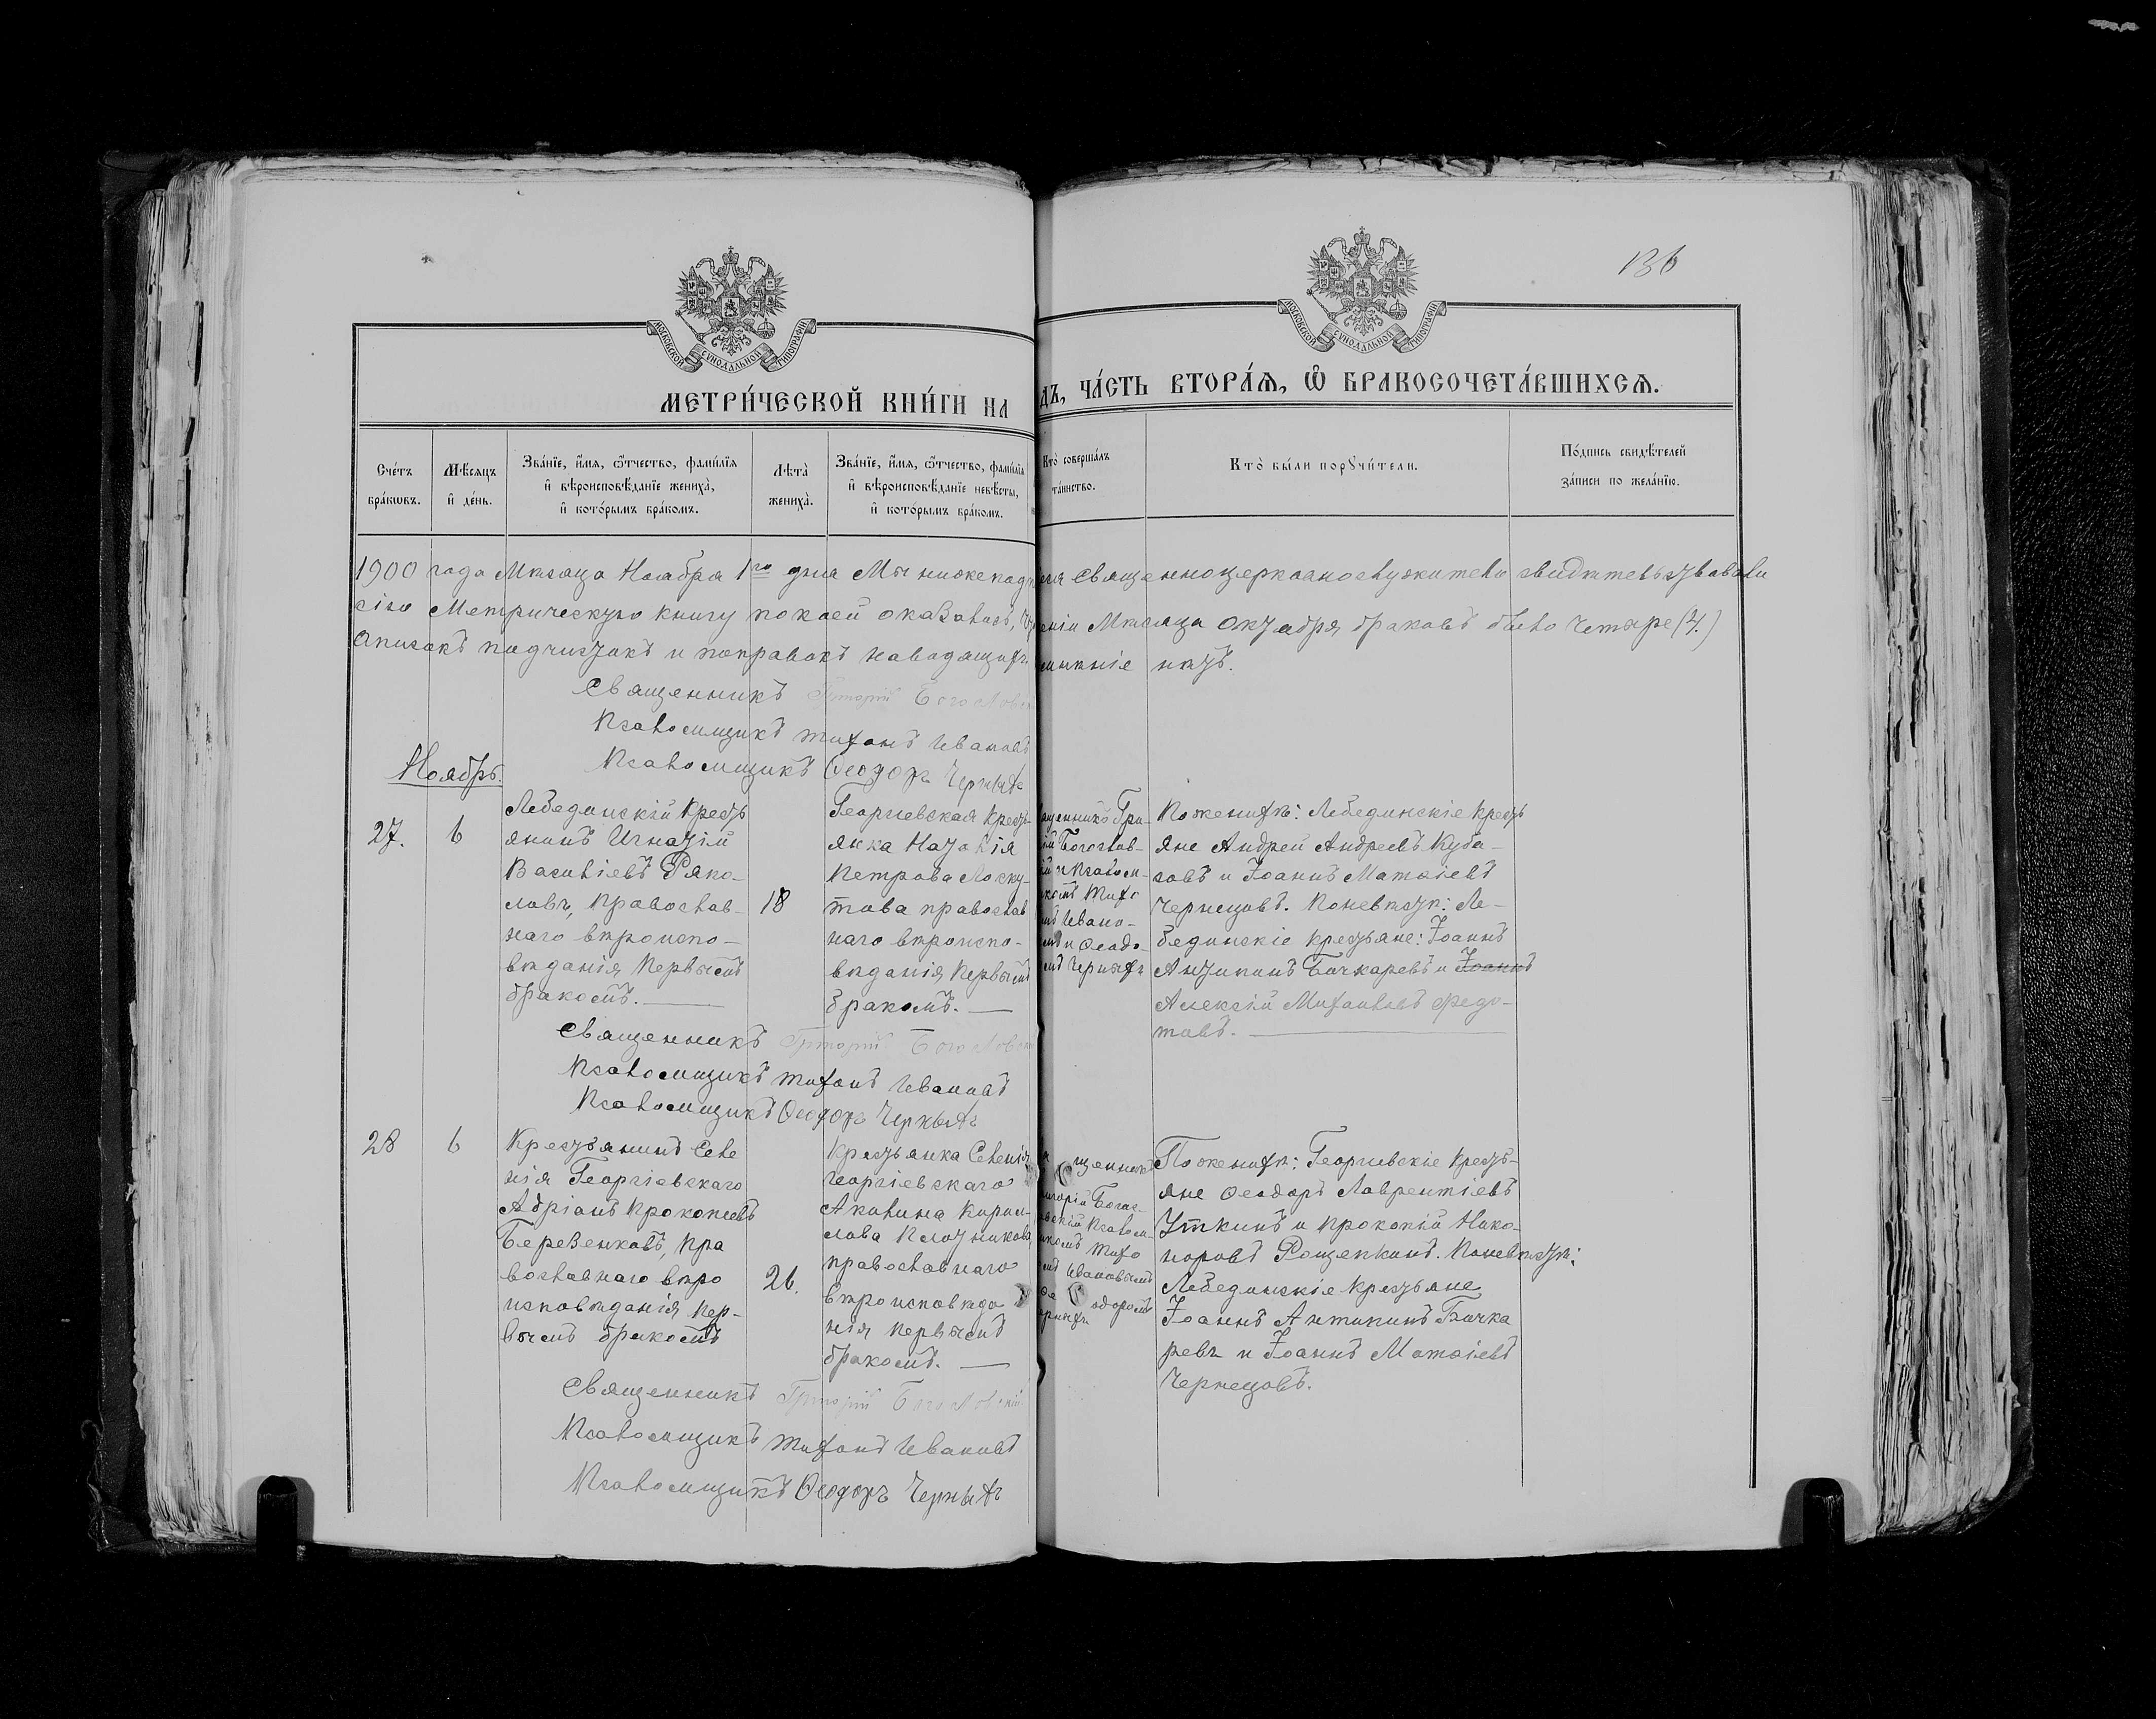 136
МОСКОВСКОЙ СѴНОДАЛЬНОЙ ТИПОГРАФІИ
МОСКОВСКОЙ СѴНОДАЛЬНОЙ ТИПОГРАФІИ
МЕТРИ́ЧЕСКОЙ КНИ́ГИ НА
ДЪ, ЧА́СТЬ ВТОРА́Ѧ, Ѽ БРАКОСОЧЕТА́ВШИХСѦ.
Сче́тъ бра́кѡвъ.
Мѣ́сяцъ и҆ де́нь.
Зва́нїе, и҆́мя, ѻ҆́тчество, фами́лїя и҆ вѣроисповѣ́данїе жениха̀, и҆ кото́рымъ бра́комъ.
Лѣта̀ жениха̀.
Зва́нїе, и҆́мя, ѻ҆́тчество, фами́лїя и҆ вѣроисповѣ́данїе невѣ́сты, и҆ кото́рымъ бра́комъ.
Кто̀ соверша́лъ та́инство.
Кто̀ бы́ли порꙋчи́тели.
По́дпись свидѣ́телей за́писи по жела́нїю.
1900 года Мѣсяца Ноября 1го дня Мы нижепод священноцерковнослужители свидѣтельствовали
сію Метрическую книгу по коей оказалось, Мѣсяца Октября браковъ было четыре (4.)
описокъ подчистокъ и поправокъ наводящихъ нѣтъ.
Священникъ Григорій Богослов
Псаломщикъ Тихонъ Ивановъ
Псаломщикъ Ѳеодоръ Черныхъ
Ноябрь.
27.
6
Лебединскій крестъ
янинъ Игнатій
Василіевъ Ряпо-
ловъ, православ-
наго вѣроиспо-
вѣданія первымъ
бракомъ.
18
Георгіевская крестъ-
янка Наталія
Петрова Лоску-
това православ
наго вѣроиспо-
вѣданія первымъ
бракомъ.
щенникъ Гри-
ій Богослов-
ій и Псалом-
комъ Тихо
Ивано-
и Ѳеодо-
Черныхъ
По женихѣ: Лебединскіе крестъ
яне Андрей Андреевъ Куба-
совъ и Іоаннъ Матѳіевъ
Чернецовъ. По невѣстѣ: Ле-
бединскіе крестьяне: Іоаннъ
Антипинъ Бочкаревъ и Іоаннъ
Алексій Михаиловъ Федо-
товъ.
Священникъ Григорій Богословскій
Псаломщикъ Тихонъ Ивановъ
Псаломщикъ Ѳеодоръ Черныхъ
28
6
Крестьянинъ Селе
нія Георгіевскаго
Адріанъ Прокопіевъ
Березенковъ, пра
вославнаго вѣро
исповѣданія пер-
вымъ бракомъ
26.
Крестьянка Селенія
Георгіевскаго
Акилина Кирил-
лова Плотникова,
православнаго
вѣроисповѣда
нія первымъ
бракомъ.
щенник
игорій Богос-
вскій Псалом-
комъ Тихо
Ивановымъ
одоромъ
По женихѣ: Георгіевскіе крестъ-
яне Ѳеодоръ Лаврентіевъ
Уткинъ и Прокопій Нико-
норовъ Рощепкинъ. По невѣстѣ:
Лебединскіе крестьяне
Іоаннъ Антипинъ Бочка
ревъ и Іоаннъ Матѳіевъ
Чернецовъ.
Священникъ Григорій Богословскій
Псаломщикъ Тихонъ Ивановъ
Псаломщикъ Ѳеодоръ Черныхъ